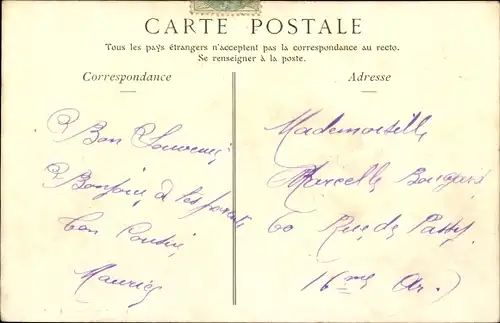 CARTE POSTALE
Tous les pays étrangers n'acceptent pas la correspondance au recto.
Se renseigner à la poste.
Correspondance
Bon Souvenir
Bonjour à tes parents
Ton Cousin
Maurice
Adresse
Mademoiselle
Marcelle
60 Rue de Passy
16me Ar.